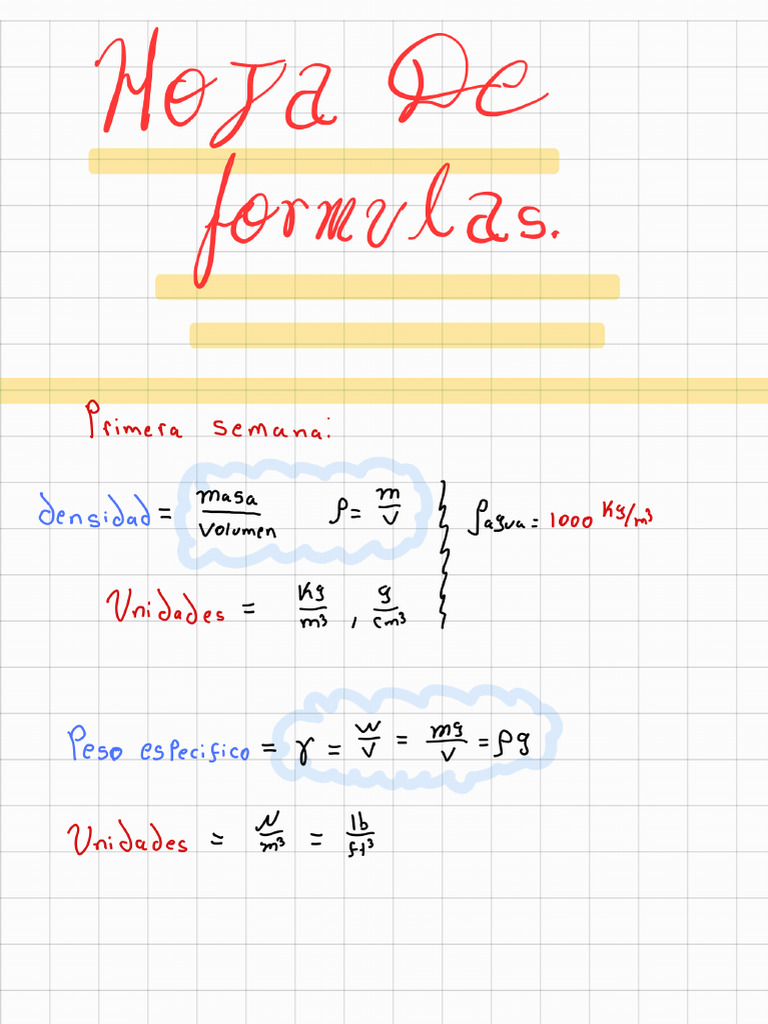 Hoja De
formulas.
Primera semana:
densidad = masa/volumen ρ = m/v ρagua = 1000 Kg/m³
Unidades = Kg/m³ , g/cm³
Peso especifico = γ = w/v = mg/v = ρg
Unidades = N/m³ = lb/ft³